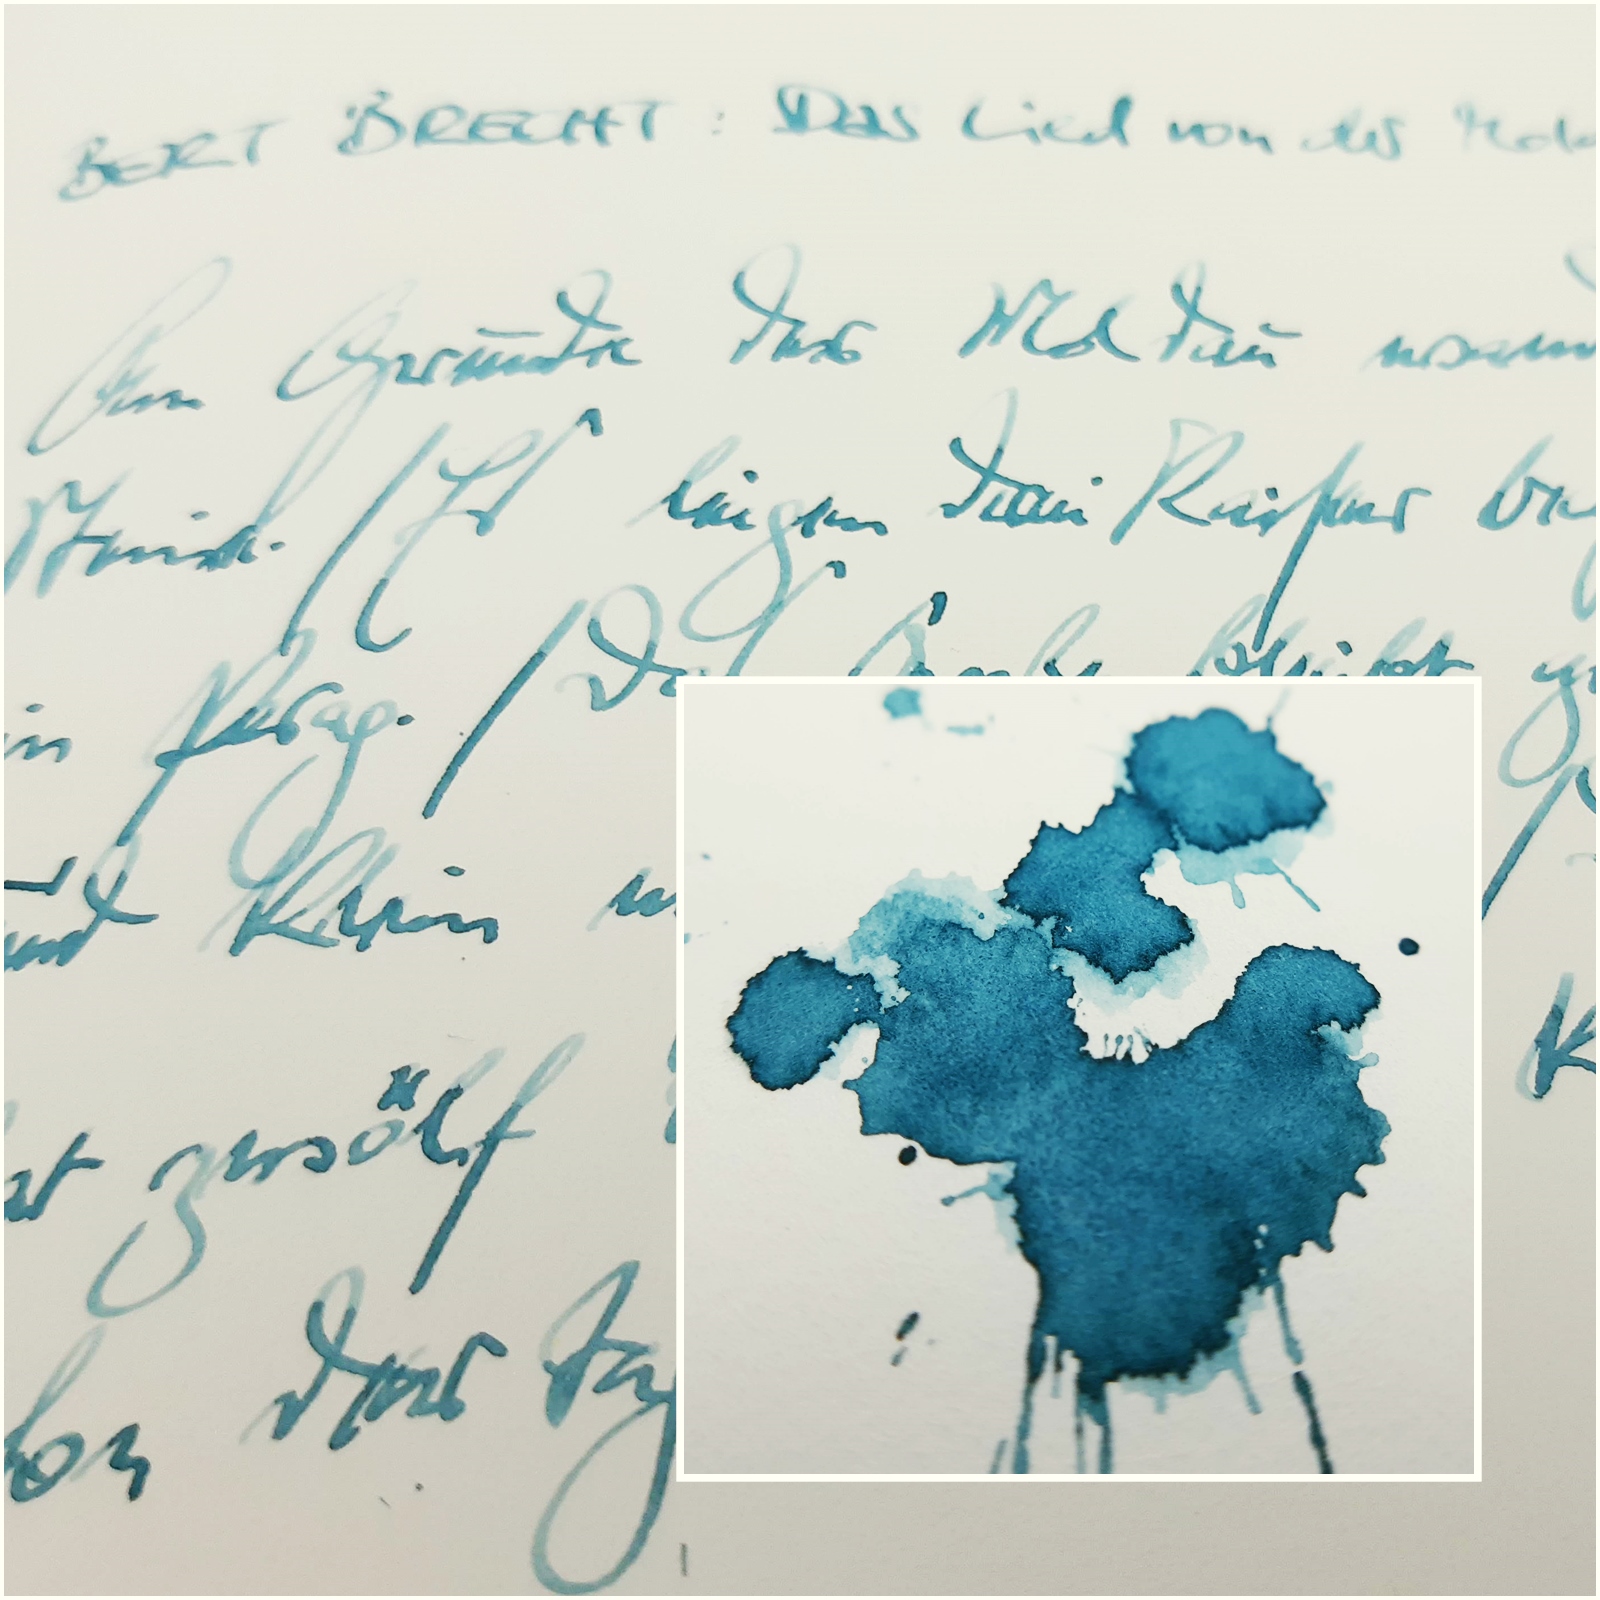 BERT BRECHT: Das Lied von der Molda
Am Grunde der Moldau
Steine. / Es liegen drei Kaiser
in Prag. / Das bleibt
und klein
hat zwölf
der Tag